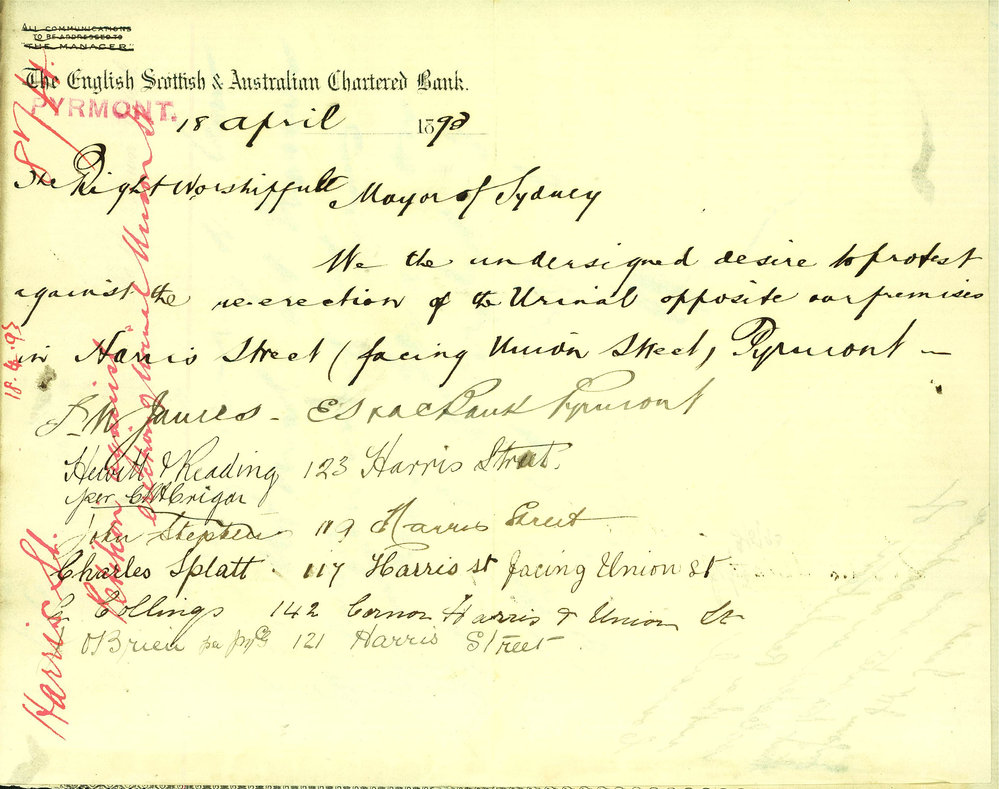 ALL COMMUNICATIONS
TO BE ADDRESSED TO
"THE MANAGER"
The English Scottish & Australian Chartered Bank.
PYRMONT.
18 April 1893
The Right Worshipfull Mayor of Sydney
We the undersigned desire to protest
against the re-erection of the Urinal opposite our premises
in Harris Street (facing Union Street) Pyrmont —
James - ES & AC Bank Pyrmont
Hewitt & Reading 123 Harris Street.
per
John Stephen 119 Harris Street
Charles Splatt 117 Harris st facing Union st
Collings 142 Cornor Harris & Union St
O'Brien 121 Harris Street
Harris St.
Petition against
erection of Urinal Union St
18.4.93